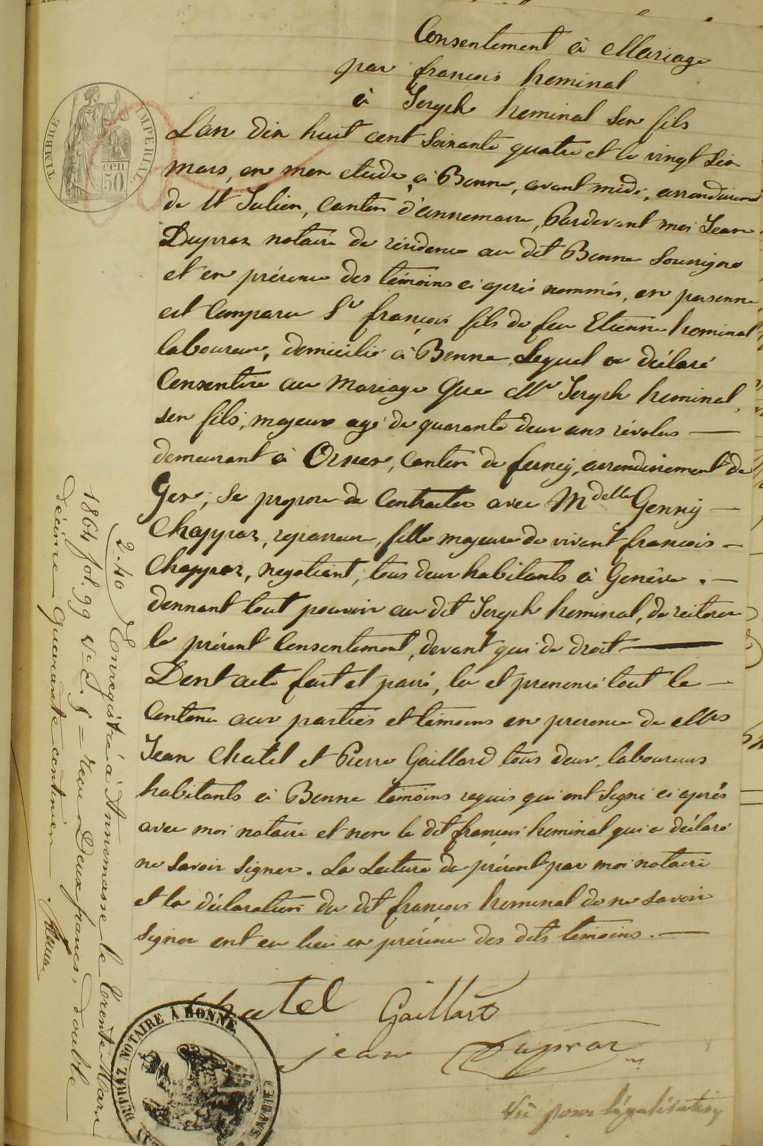 Consentement à Mariage
par françois heminal
à Joseph heminal son fils
TIMBRE IMPERIAL
50 cen
L'an dix huit cent soixante quatre et le vingt six
mars, en mon etude, à Bonne, avant midi, arrondissement
de St Julien, canton d'annemasse, Pardevant moi Jean
Dupraz notaire de résidence au dit Bonne soussigné
et en présence des témoins ci après nommés, en personne
est comparu Sr françois fils de feu Etienne heminal
laboureur, domicilié à Bonne, Lequel a déclaré
Consentire au mariage que Mr Joseph heminal,
son fils, majeur agé de quarante deux ans révolus —
demeurant à Ornex, canton de ferney, arrondissement de
Gex, se propose de contracter avec Mdelle Genny —
Chappaz, repasseuse, fille majeure de vivant françois —
Chappaz, negotiant, tous deux habitants à Genève. —
donnant tout pouvoir au dit Joseph heminal, de reiterer
le présent Consentement, devant qui de droit —
Dont acte fait et passé, lu et prononcé tout le —
contenu aux parties et témoins en presence de Mrs
Jean Chatel et Pierre Gaillard tous deux laboureurs
habitants à Bonne témoins requis qui ont signé ci après
avec moi notaire et non le dit françois heminal qui a déclaré
ne savoir signer. La Lecture du présent par moi notaire
et la déclaration du dit françois heminal de ne savoir
signer ont eu lieu en présence des dits témoins. —
Chatel Gaillard
jean Dupraz
DUPRAZ NOTAIRE A BONNE
SAVOIE
Vu pour légalisation
2.40 Enregistré à Annemasse le Trente Mars
1864 fol. 99 Vo C. 5 = Reçu Deux francs, double
décime quarante centimes.